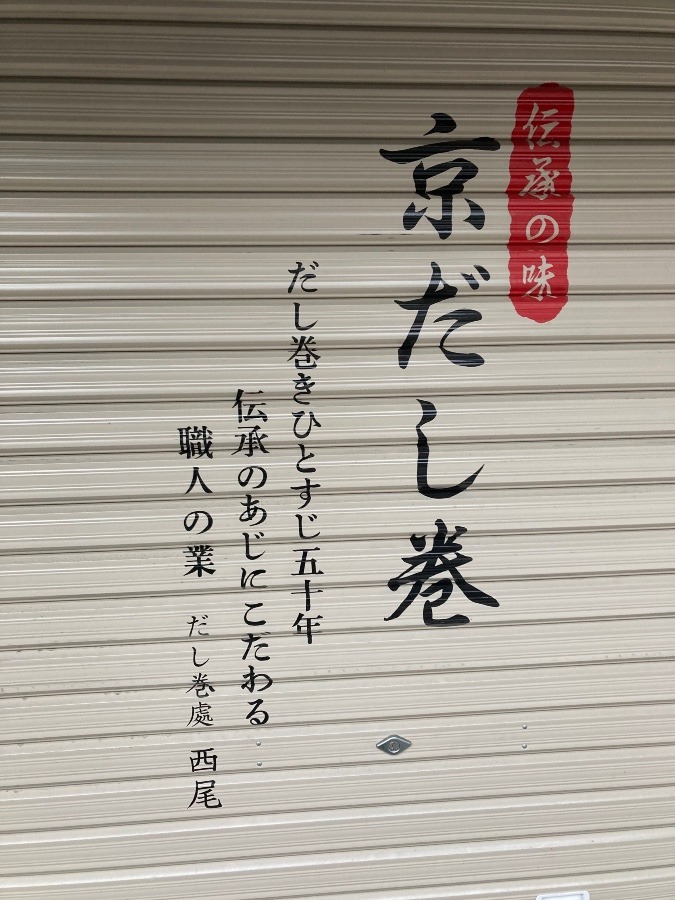 伝承の味
京だし巻
だし巻きひとすじ五十年
伝承のあじにこだわる
職人の業
だし巻處 西尾